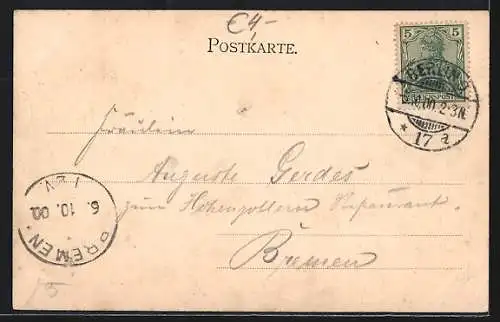 €4,-
POSTKARTE.
5 5
REICHSPOST
BERLIN
.00. 2-3N.
* 17 a
Fräulein
Auguste Gerdes
zum Hohenzollern Restaurant.
Bremen
BREMEN
6. 10. 00
1 2 V.